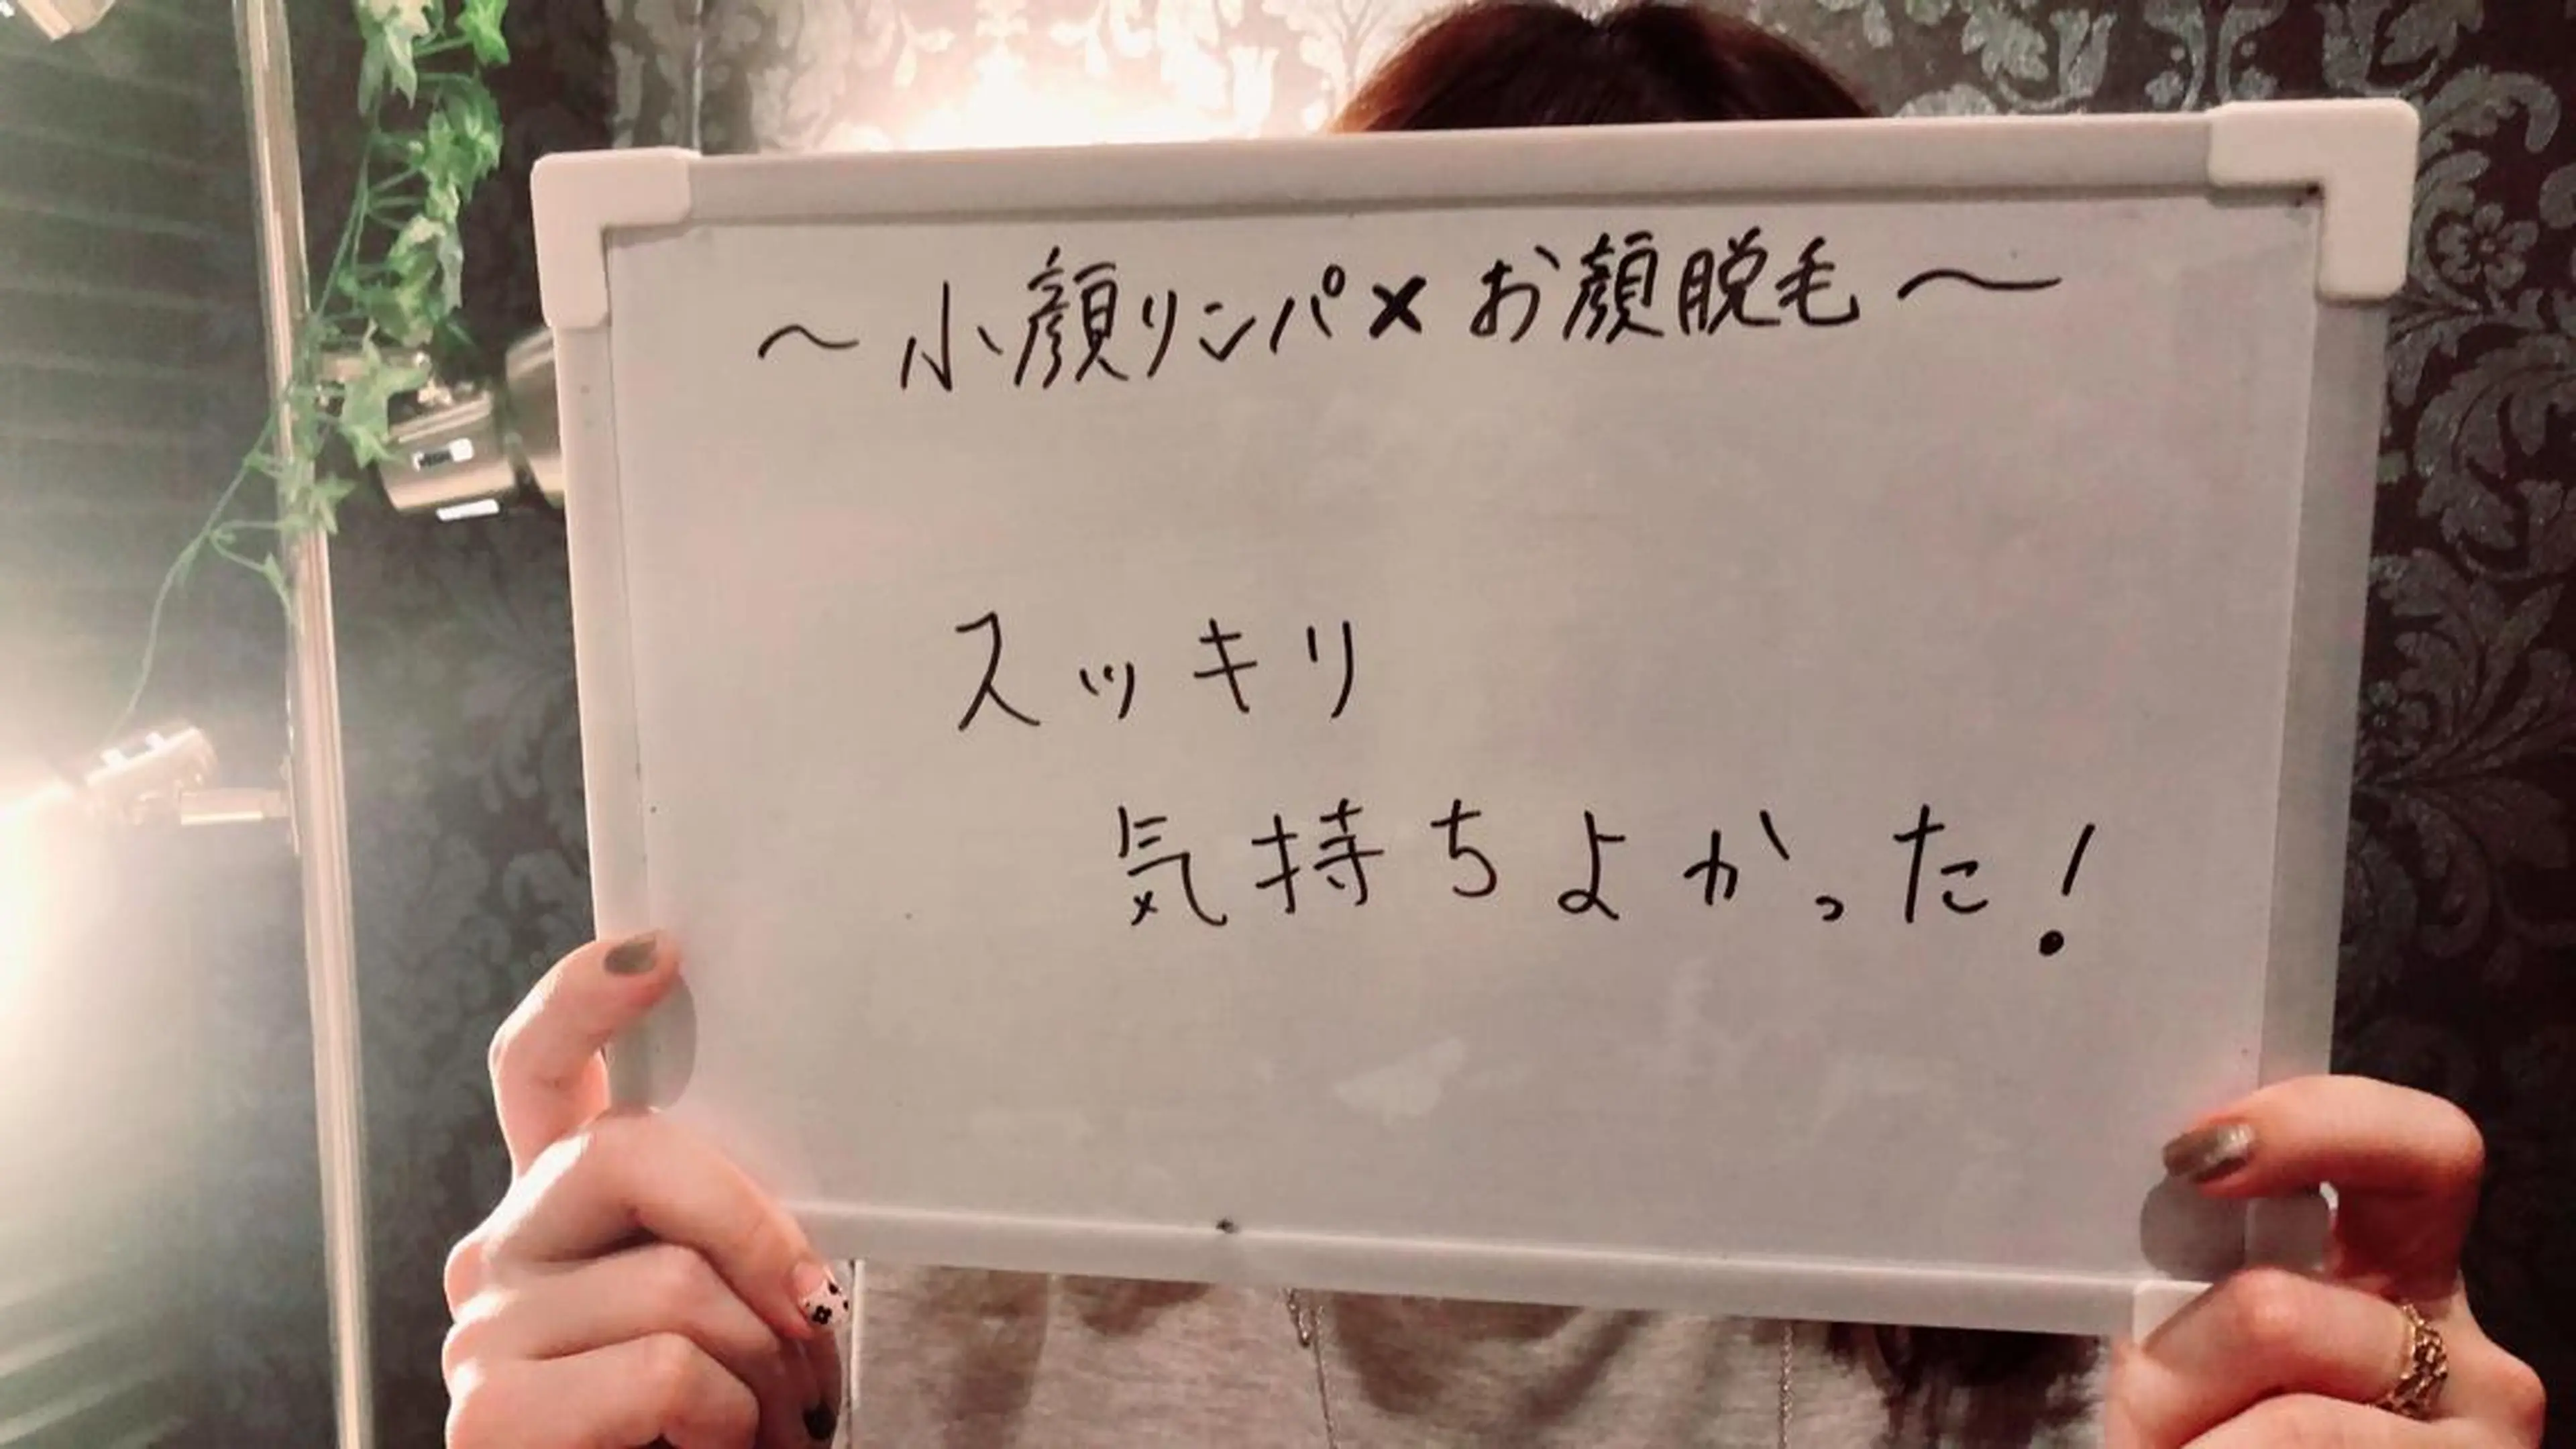 ～小顔リンパ×お顔脱毛～
スッキリ
気持ちよかった！